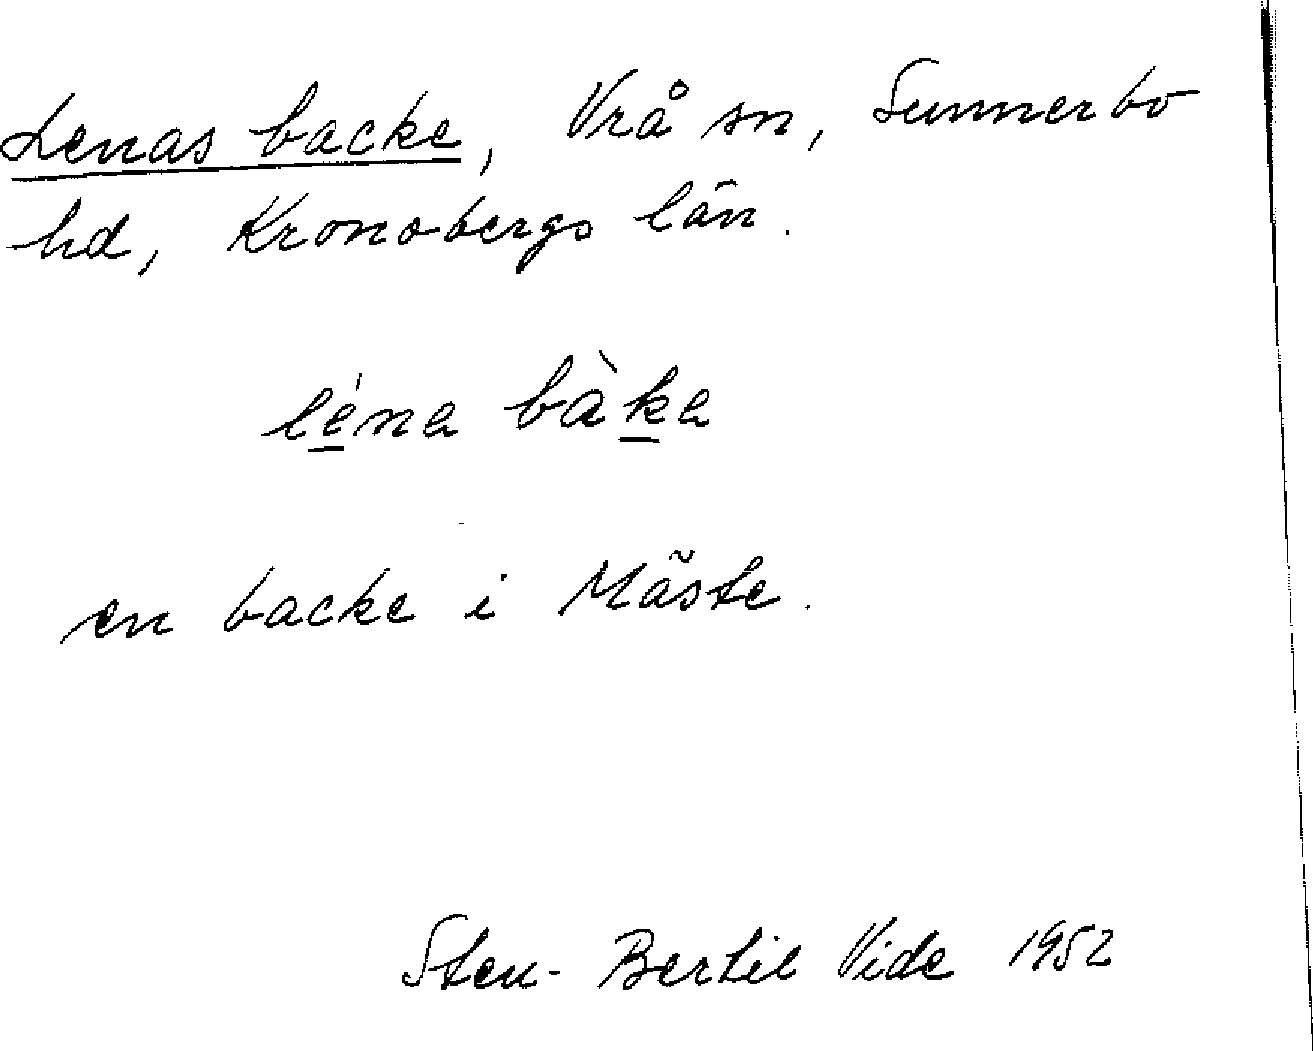 Lenas backe, Vrå sn, Sunnerbo
hd, Kronobergs län.
léna bàka
en backe i Mäste.
Sten-Bertil Vide 1952